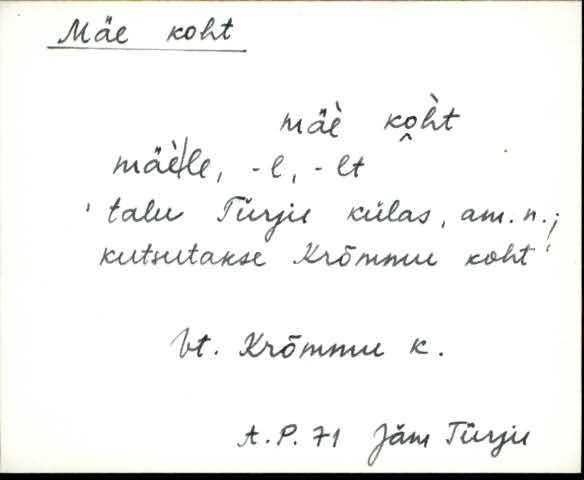 Mäe koht
mäè ko̭h̀t
mäè|le, -l, -lt
' talu Türju külas, am. n.;
kutsutakse Krõmmu koht '
Vt. Krõmmu k.
A.P. 71 Jäm Türju